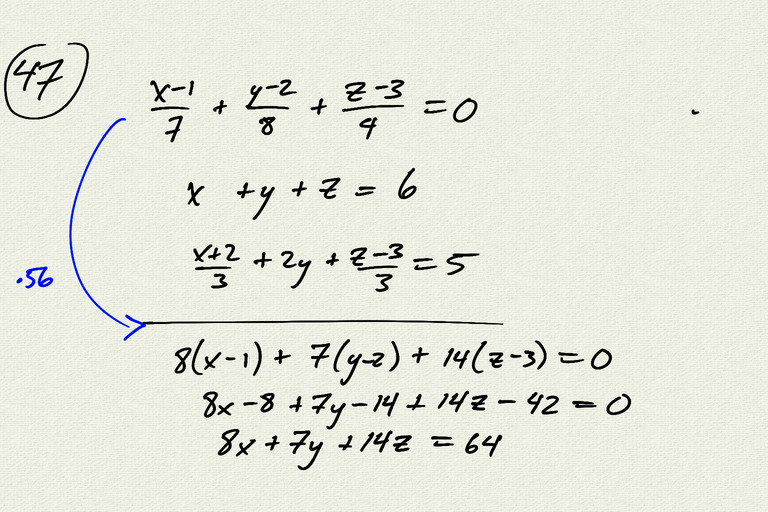 47
(x-1)/7 + (y-2)/8 + (z-3)/4 = 0
x + y + z = 6
(x+2)/3 + 2y + (z-3)/3 = 5
.56
8(x-1) + 7(y-2) + 14(z-3) = 0
8x - 8 + 7y - 14 + 14z - 42 = 0
8x + 7y + 14z = 64